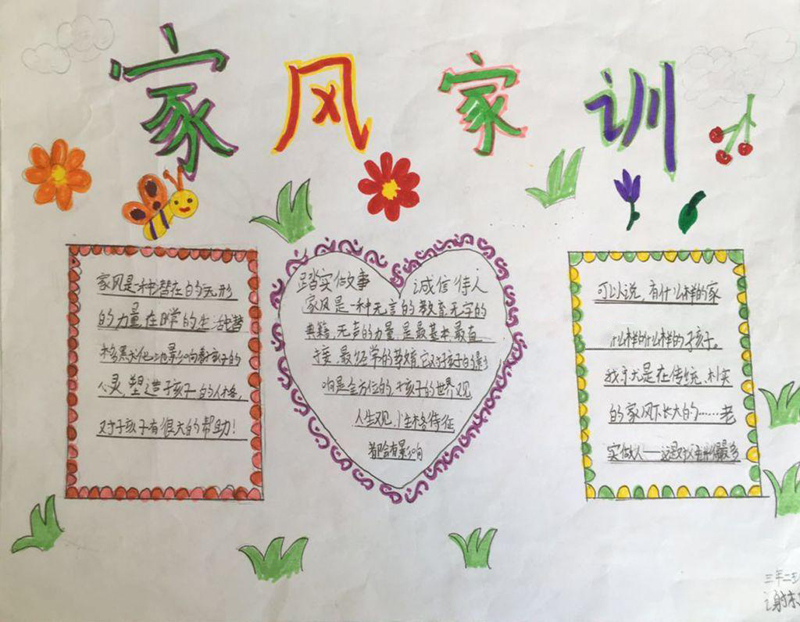 家风家训
家风是一种潜在的无形
的力量在日常的生活潜
移默化地影响着孩子的
心灵,塑造孩子的人格,
对于孩子有很大的帮助!
踏实做事 诚信待人
家风是一种无言的教育无字的
典籍,无声的力量,是最基本最直
接,最经常的教育,它对孩子的影
响是全方位的,孩子的世界观
人生观,性格特征
都会有影响
可以说,有什么样的家
什么样的孩子。
我于无是在传统,朴实
的家风下长大的……老
实做人——
三年二
谢